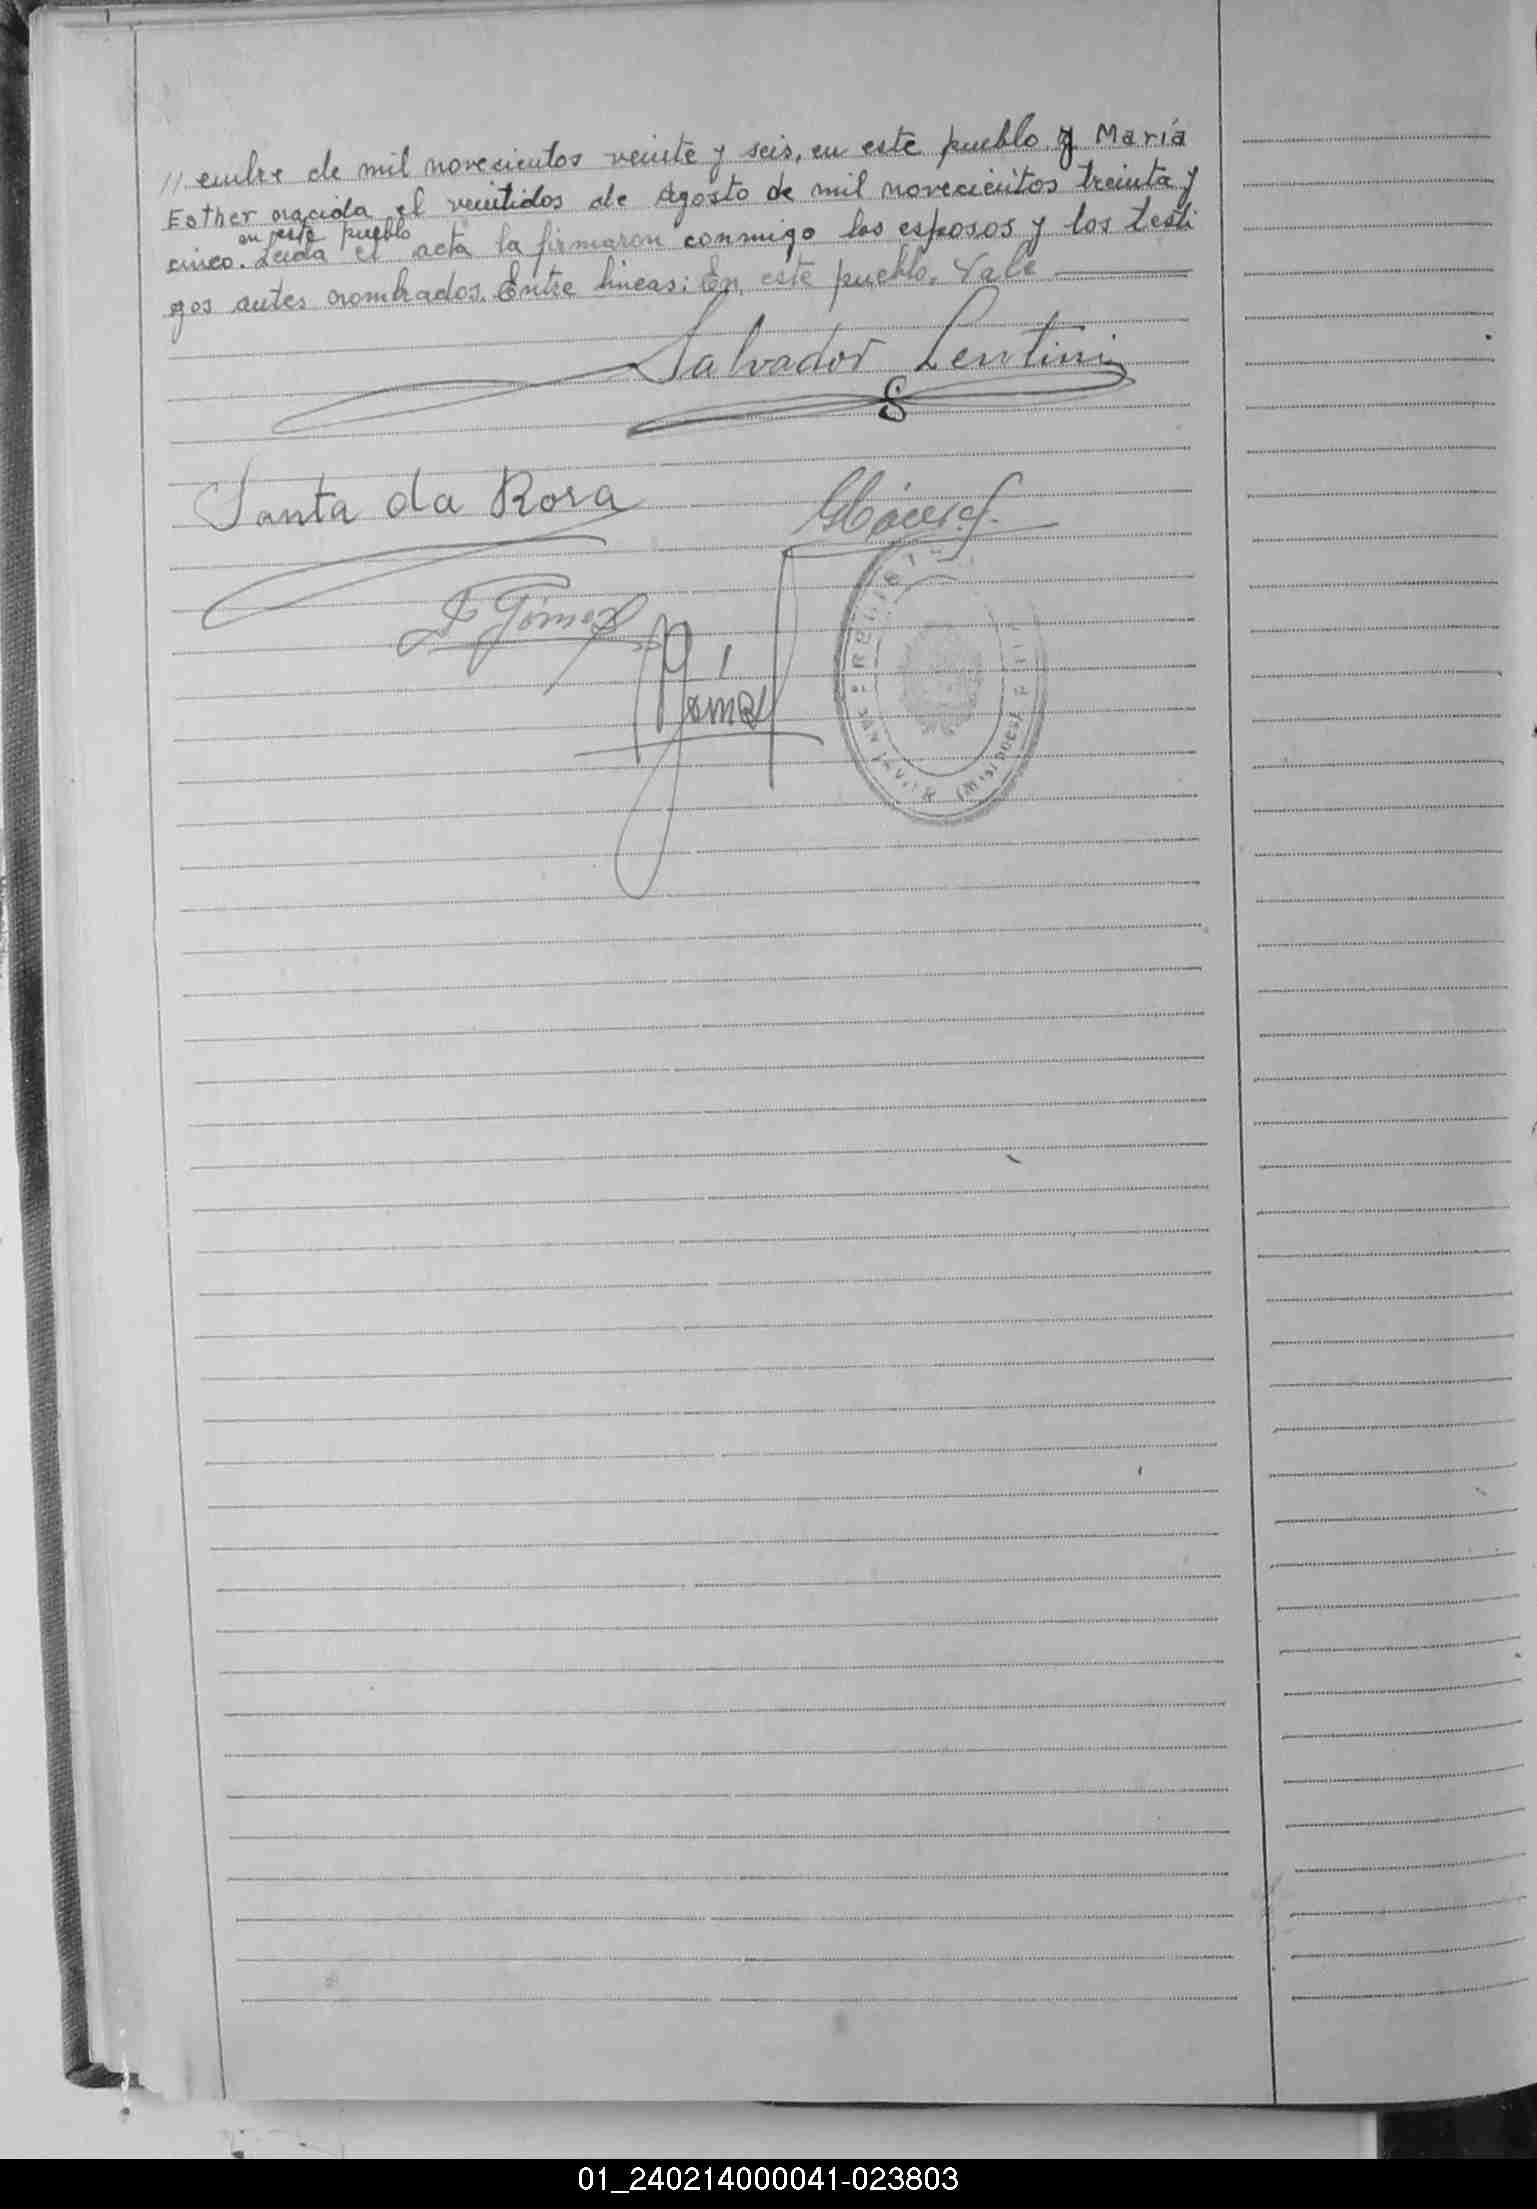 // embre de mil novecientos veinte y seis, en este pueblo y María
Esther nacida el veintidos de Agosto de mil novecientos treinta y
en este pueblo
cinco. Leida el acta la firmaron conmigo los esposos y los testi
gos antes nombrados. Entre lineas: En este pueblo. Vale
Salvador Lentini
Santa da Rosa
Gómez
Gómez
SAN JAVIER (MISIONES)
01_240214000041-023803